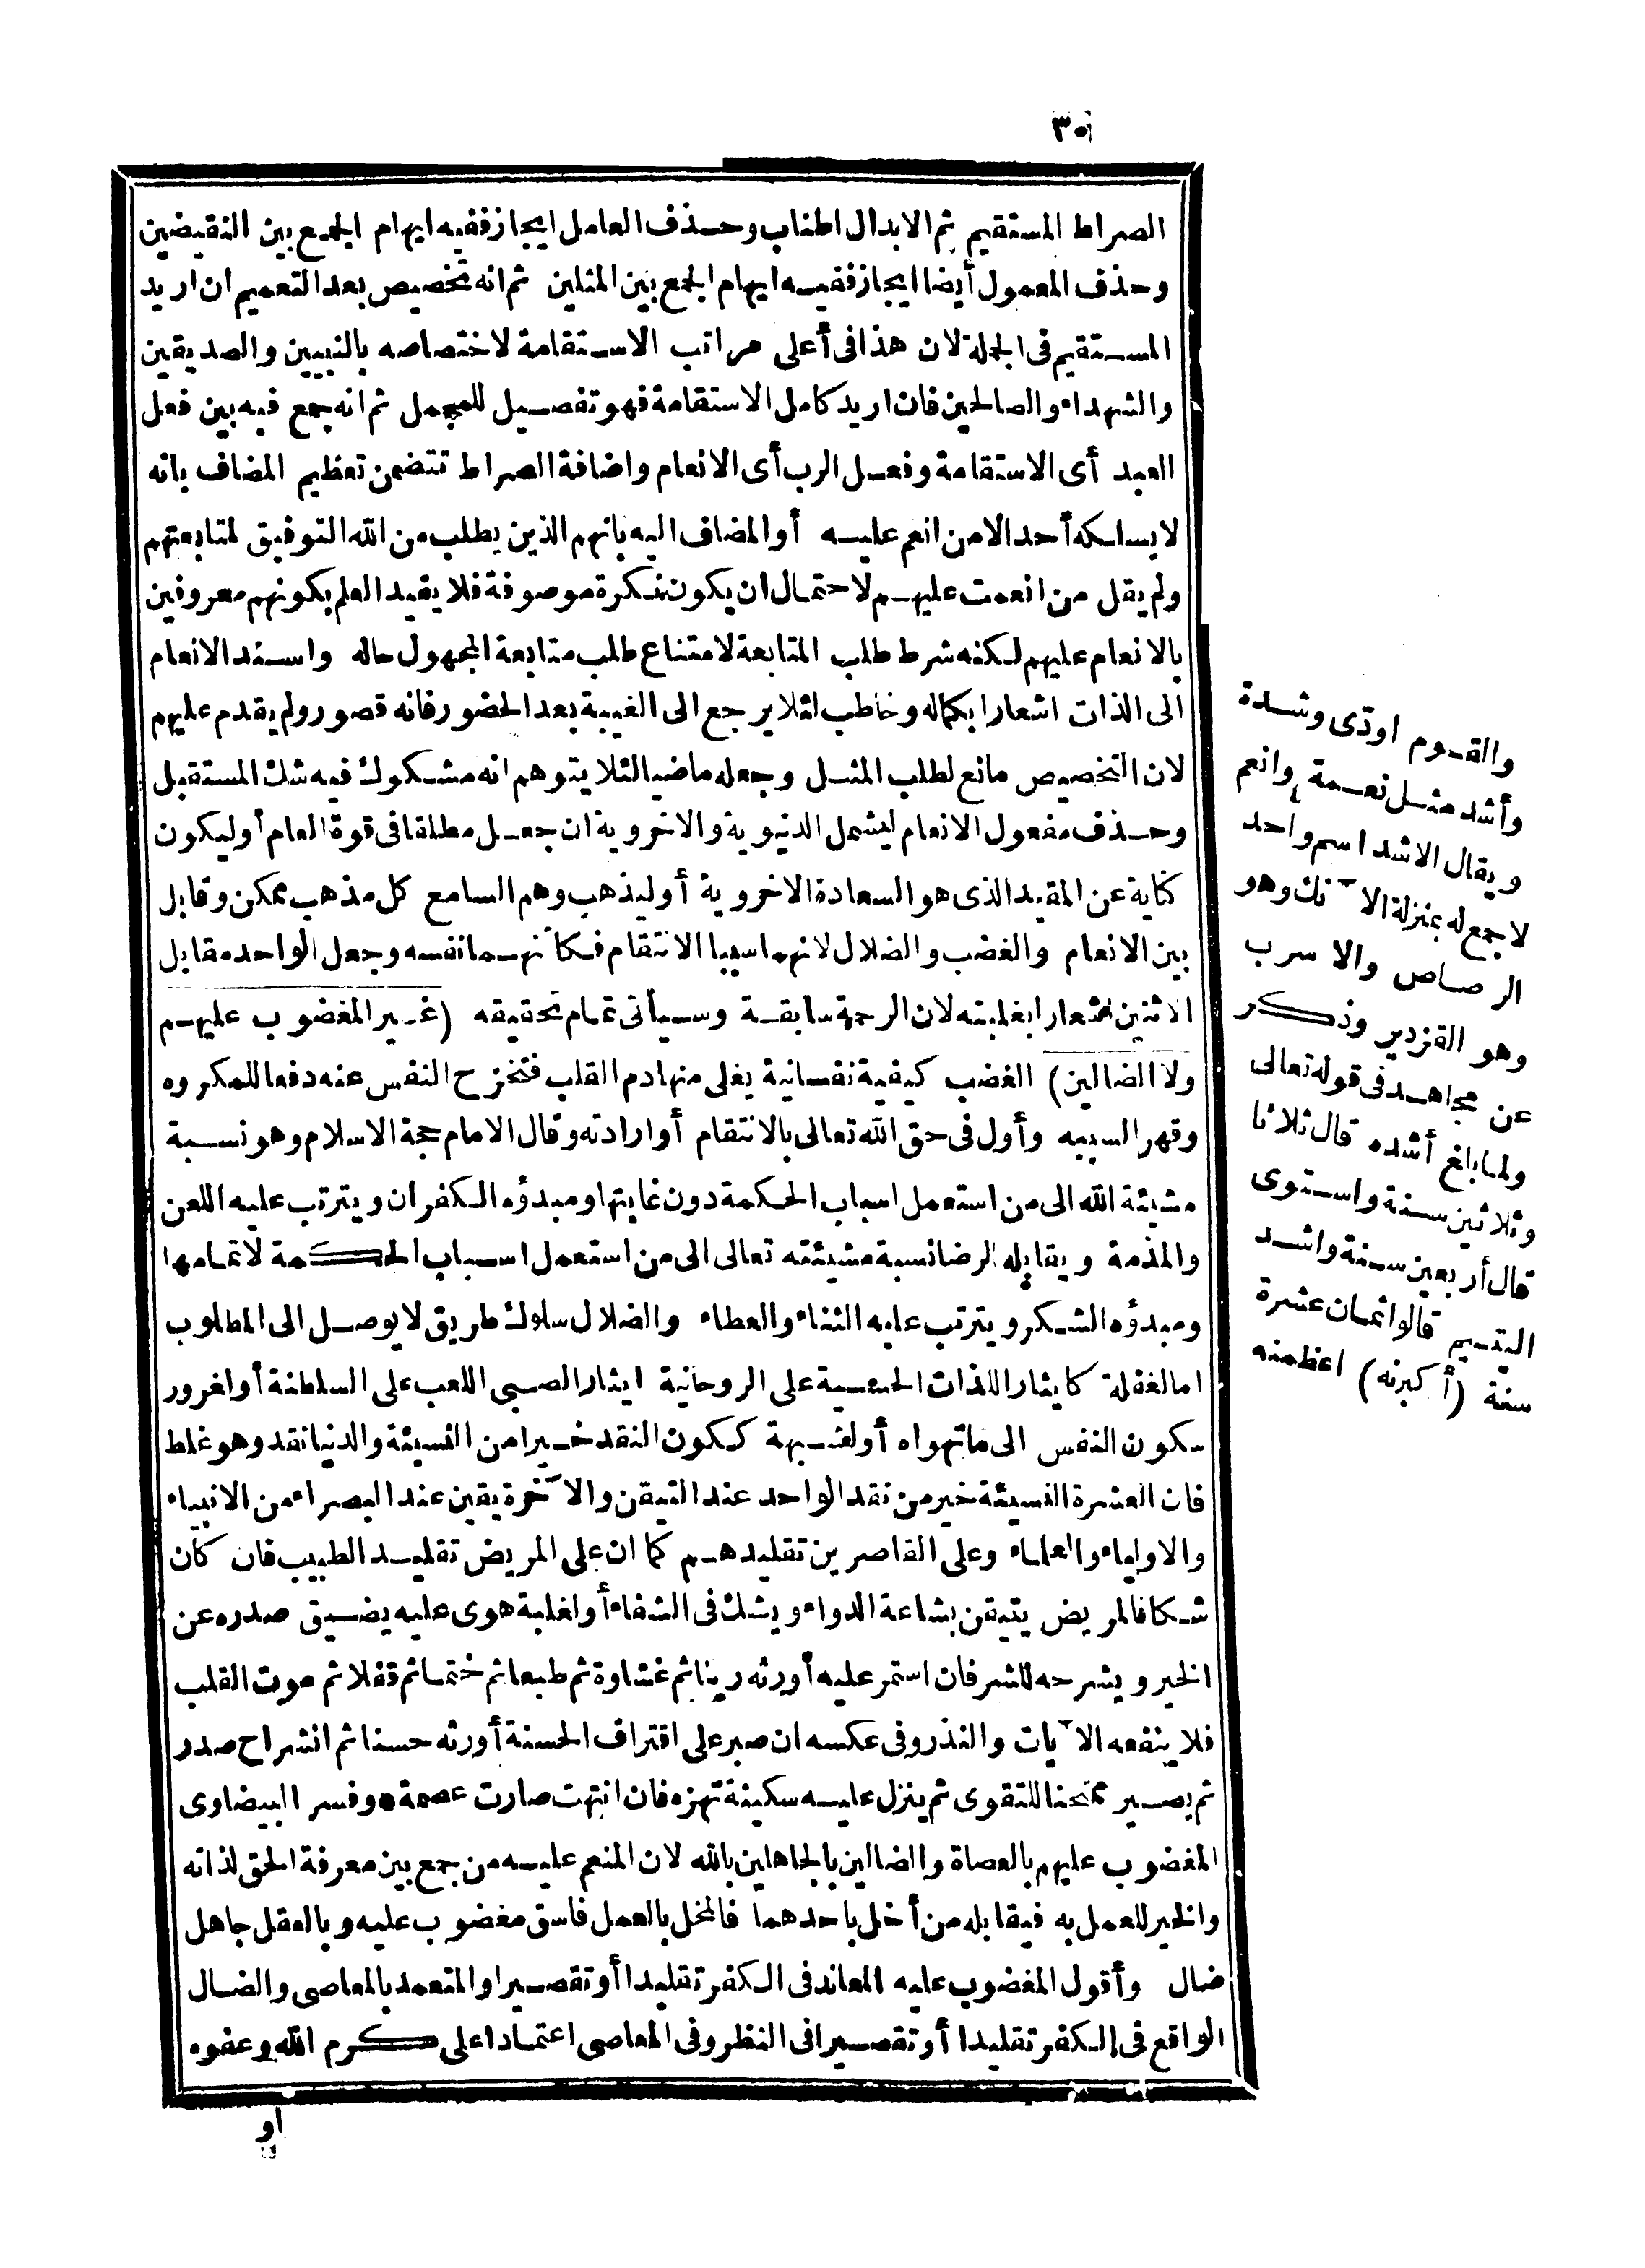 ٣٠
الصراط المستقيم ثم الابدال اطناب وحذف العامل ايجاز ففيه ايهام الجمع بين النقيضين
وحذف المعمول أيضا ايجاز ففيه ايهام الجمع بين المثلين ثم انه تخصيص بعد التعميم ان اريد
المستقيم فى الجملة لان هذا فى أعلى مراتب الاستقامة لاختصاصه بالنبيين والصديقين
والشهداء والصالحين فان اريد كامل الاستقامة فهو تفصيل للمجمل ثم انه جمع فيه بين فعل
العبد أى الاستقامة وفعل الرب أى الانعام واضافة الصراط تتضمن تعظيم المضاف بانه
لا يسلكه أحد الا من انعم عليه أو المضاف اليه بانهم الذين يطلب من الله التوفيق لمتابعتهم
ولم يقل من انعمت عليهم لاحتمال ان يكون نكرة موصوفة فلا يقيد العلم بكونهم معروفين
بالانعام عليهم لكنه شرط طلب المتابعة لامتناع طلب متابعة المجهول حاله واسند الانعام
الى الذات اشعارا بكماله وخاطب لئلا يرجع الى الغيبة بعد الحضور فانه قصور ولم يقدم عليهم
لان التخصيص مانع لطلب المثل وجعله ماضيا لئلا يتوهم انه مشكوك فيه شك المستقبل
وحذف مفعول الانعام ليشمل الدنيوية والاخروية ان جعل مطلقا فى قوة العام أوليكون
كناية عن المقيد الذى هو السعادة الاخروية أو ليذهب وهم السامع كل مذهب ممكن وقابل
بين الانعام والغضب والضلال لانهما سببا الانتقام فكأنهما نفسه وجعل الواحد مقابل
الاثنين اشعارا بغلبته لان الرحمة سابقة وسيأتى تمام تحقيقه (غير المغضوب عليهم
ولا الضالين) الغضب كيفية نفسانية يغلى منها دم القلب فتخرج النفس عنه دفعا للمكروه
وقهر السببه وأول فى حق الله تعالى بالانتقام أو ارادته وقال الامام حجة الاسلام وهو نسبة
مشيئة الله الى من استعمل اسباب الحكمة دون غايتها ومبدؤه الكفران ويترتب عليه اللعن
والمذمة ويقابله الرضا نسبة مشيئته تعالى الى من استعمل اسباب الحكمة لا تمامها
ومبدؤه الشكر ويترتب عليه الثناء والعطاء والضلال سلوك طريق لا يوصل الى المطلوب
اما لغفلة كايثار اللذات الحسية على الروحانية ايثار الصبى اللعب على السلطنة أو لغرور
سكون النفس الى ما تهواه أو لشبهة ككون النقد خيرا من النسيئة والدنيا نقد وهو غلط
فان العشرة النسيئة خير من نقد الواحد عند التيقن والآخرة يقين عند البصراء من الانبياء
والاولياء والعلماء وعلى القاصرين تقليدهم كما ان على المريض تقليد الطبيب فان كان
شكا فالمريض يتيقن بشاعة الدواء ويشك فى الشفاء أو لغلبة هوى عليه يضيق صدره عن
الخير ويشرحه للشر فان استمر عليه أورثه رينا ثم غشاوة ثم طبعا ثم ختما ثم قفلا ثم موت القلب
فلا ينفعه الآيات والنذر وفى عكسه ان صبر على اقتراف الحسنة أورثه حسنا ثم انشراح صدر
ثم يصير ممتحنا للتقوى ثم ينزل عليه سكينة تهزه فان انتهت صارت عصمة وفسر البيضاوى
المغضوب عليهم بالعصاة والضالين بالجاهلين بالله لان المنعم عليه من جمع بين معرفة الحق لذاته
والخير للعمل به فيقابله من أخل باحدهما فالمخل بالعمل فاسق مغضوب عليه وبالعقل جاهل
ضال وأقول المغضوب عليه المعاند فى الكفر تقليدا أو تقصيرا او المتعمد بالمعاصى والضال
الواقع فى الكفر تقليدا أو تقصيرا فى النظر وفى المعاصى اعتمادا على كرم الله وعفوه
او
والقدوم اودّى وشدة
وأشد مثل نعمة وانعم
ويقال الاشد اسم واحد
لا جمع له بمنزلة الآنك وهو
الرصاص والاسرب
وهو القزدير وذكر
عن مجاهد فى قوله تعالى
ولما بلغ أشده قال ثلاثا
وثلاثين سنة واستوى
قال أربعين سنة واشد
اليتيم قالوا ثمان عشرة
سنة (أكبرنه) اعظمنه